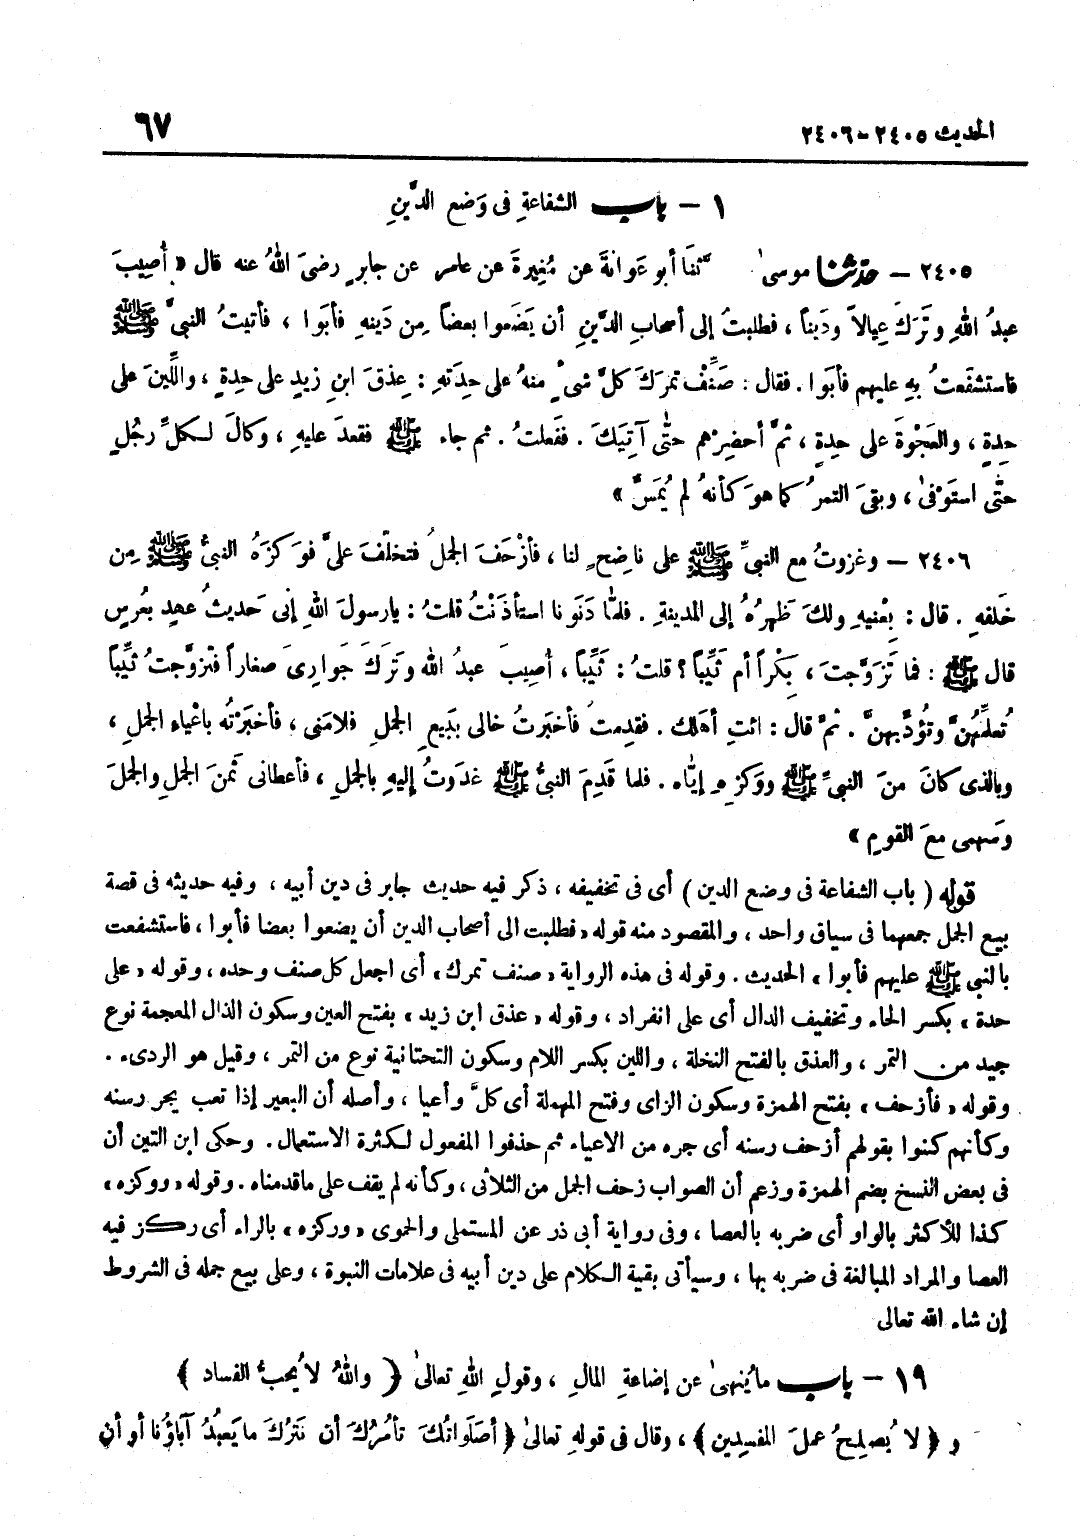 الحديث ٢٤٠٥ - ٢٤٠٦
٦٧
١ - باب الشفاعةِ فى وَضع الدَّينِ
٢٤٠٥ - حدثنا موسىٰ ثنا أبو عَوانةَ عن مُغِيرةَ عن عامر عن جابرٍ رضىَ اللهُ عنه قال « أُصِيبَ
عبدُ اللهِ وتَرَكَ عِيالاً ودَيناً ، فطلبتُ إلى أصحابِ الدَّينِ أن يَضَعوا بعضاً مِن دَينهِ فأبَوا ، فأتيتُ النبىَّ ﷺ
فاستشفَعتُ بهِ عليهم فأبَوا . فقال : صَنِّف تمرَكَ كلَّ شىْءٍ منهُ على حِدَتهِ : عِذقَ ابنِ زيدٍ على حِدةٍ ، واللِّينَ على
حِدةٍ ، والعَجْوةَ على حِدةٍ ، ثمَّ أحضِرْهم حتّٰى آتِيَكَ . ففَعلتُ . ثم جاء ﷺ فقعدَ عليهِ ، وكالَ لكلِّ رجُلٍ
حتّٰى استَوْفىٰ ، وبقىَ التمرُ كما هوَ كأنهُ لم يُمَسَّ »
٢٤٠٦ - وغزوتُ مع النبىِّ ﷺ على ناضِحٍ لنا ، فأزْحَفَ الجملُ فتخلّفَ علىَّ فوَكزَهُ النبىُّ ﷺ مِن
خَلفهِ . قال : بِعْنيهِ ولكَ ظَهرُهُ إلى المدينةِ . فلمّا دَنَونا استأذَنْتُ قلتُ : يارسولَ اللهِ إنى حَديثُ عهدٍ بعُرسٍ
قال ﷺ : فما تَزوَّجتَ ، بِكْراً أم ثيِّباً ؟ قلتُ : ثَيِّباً ، أُصيبَ عبدُ اللهِ وتَرَكَ جَوارىَ صغاراً فتزوَّجتُ ثيِّباً
تُعلِّمُهنَّ وتُؤدِّبهنَّ . ثمَّ قال : ائتِ أهلَك . فقدِمتُ فأخبَرتُ خالى ببَيعِ الجملِ فلامَنى ، فأخبَرْتُه باغْياءِ الجملِ ،
وبالذى كانَ منَ النبىِّ ﷺ ووَكزِهِ إيّاه . فلما قَدِمَ النبىُّ ﷺ غدَوتُ إليهِ بالجملِ ، فأعطانى ثمنَ الجملِ والجملَ
وسَهمى معَ القوم »
قوله ( باب الشفاعة فى وضع الدين ) أى فى تخفيفه ، ذكر فيه حديث جابر فى دين أبيه ، وفيه حديثه فى قصة
بيع الجمل جمعهما فى سياق واحد ، والمقصود منه قوله « فطلبت الى أصحاب الدين أن يضعوا بعضا فأبوا ، فاستشفعت
بالنبى ﷺ عليهم فأبوا » الحديث . وقوله فى هذه الرواية « صنف تمرك » أى اجعل كل صنف وحده ، وقوله « على
حدة » بكسر الحاء وتخفيف الدال أى على انفراد ، وقوله « عذق ابن زيد » بفتح العين وسكون الذال المعجمة نوع
جيد من التمر ، والعذق بالفتح النخلة ، واللين بكسر اللام وسكون التحتانية نوع من التمر ، وقيل هو الردىء .
وقوله « فأزحف » بفتح الهمزة وسكون الزاى وفتح المهملة أى كلَّ وأعيا ، وأصله أن البعير إذا تعب يجر رسنه
وكأنهم كنوا بقولهم أزحف رسنه أى جره من الاعياء ثم حذفوا المفعول لكثرة الاستعمال . وحكى ابن التين أن
فى بعض النسخ بضم الهمزة وزعم أن الصواب زحف الجمل من الثلاثى ، وكأنه لم يقف على ماقدمناه . وقوله « ووكزه »
كذا للأكثر بالواو أى ضربه بالعصا ، وفى رواية أبى ذر عن المستملى والحموى « وركزه » بالراء أى ركز فيه
العصا والمراد المبالغة فى ضربه بها ، وسيأتى بقية الكلام على دين أبيه فى علامات النبوة ، وعلى بيع جمله فى الشروط
إن شاء الله تعالى
١٩ - باب ما يُنهىٰ عن إضاعةِ المالِ ، وقولِ اللهِ تعالىٰ ﴿ واللهُ لا يُحبُّ الفساد ﴾
و ﴿ لا يُصلِحُ عملَ المفسِدين ﴾ ، وقال فى قولهِ تعالىٰ ﴿ أصلَواتُكَ تأمُرُكَ أن نَترُكَ ما يَعبُدُ آباؤُنا أو أن